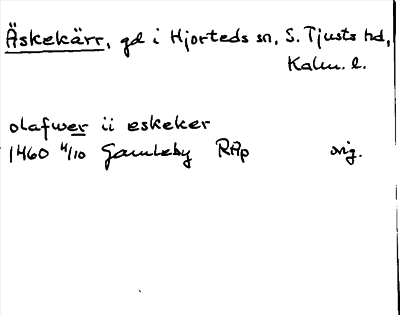 Äskekärr, gd i Hjorteds sn, S. Tjusts hd,
Kalm. l.
olafwer ii eskeker
1460 4/10 Gamleby RAp orig.